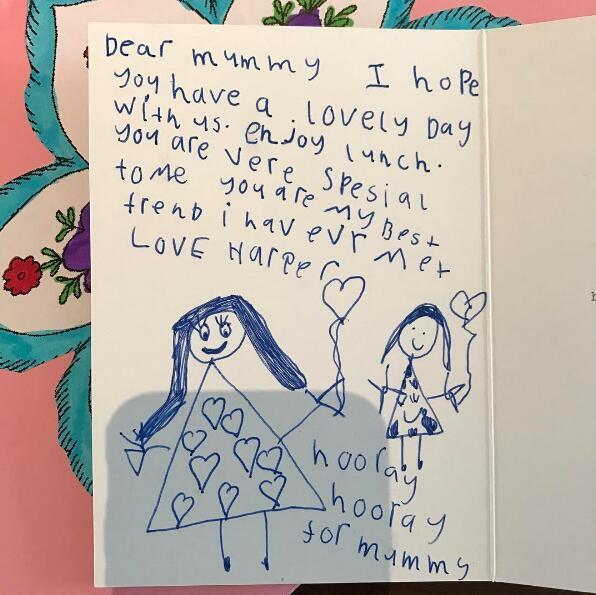 Dear mummy I hope
you have a lovely Day
with us. enjoy lunch.
you are vere spesial
to me you are my Best
frenD i hav evr met
LOVE HarPer
hooray
hooray
for mummy